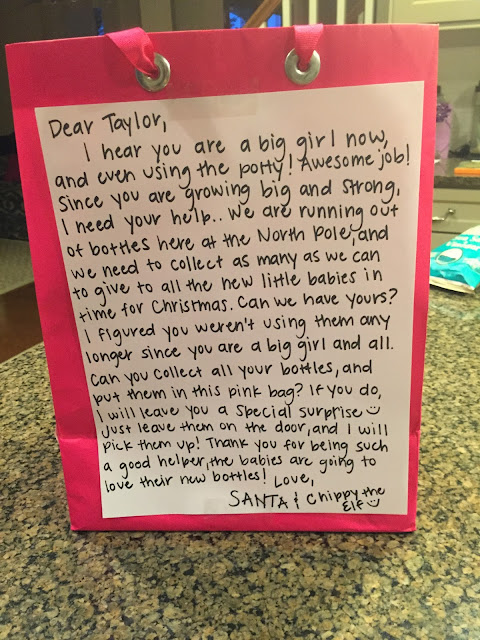 Dear Taylor,
I hear you are a big girl now,
and even using the potty! Awesome job!
Since you are growing big and strong,
I need your help.. We are running out
of bottles here at the North Pole, and
we need to collect as many as we can
to give to all the new little babies in
time for Christmas. Can we have yours?
I figured you weren't using them any
longer since you are a big girl and all.
Can you collect all your bottles, and
put them in this pink bag? If you do,
I will leave you a special surprise
Just leave them on the door, and I will
pick them up! Thank you for being such
a good helper, the babies are going to
love their new bottles! Love,
SANTA & Chippy the
Elf